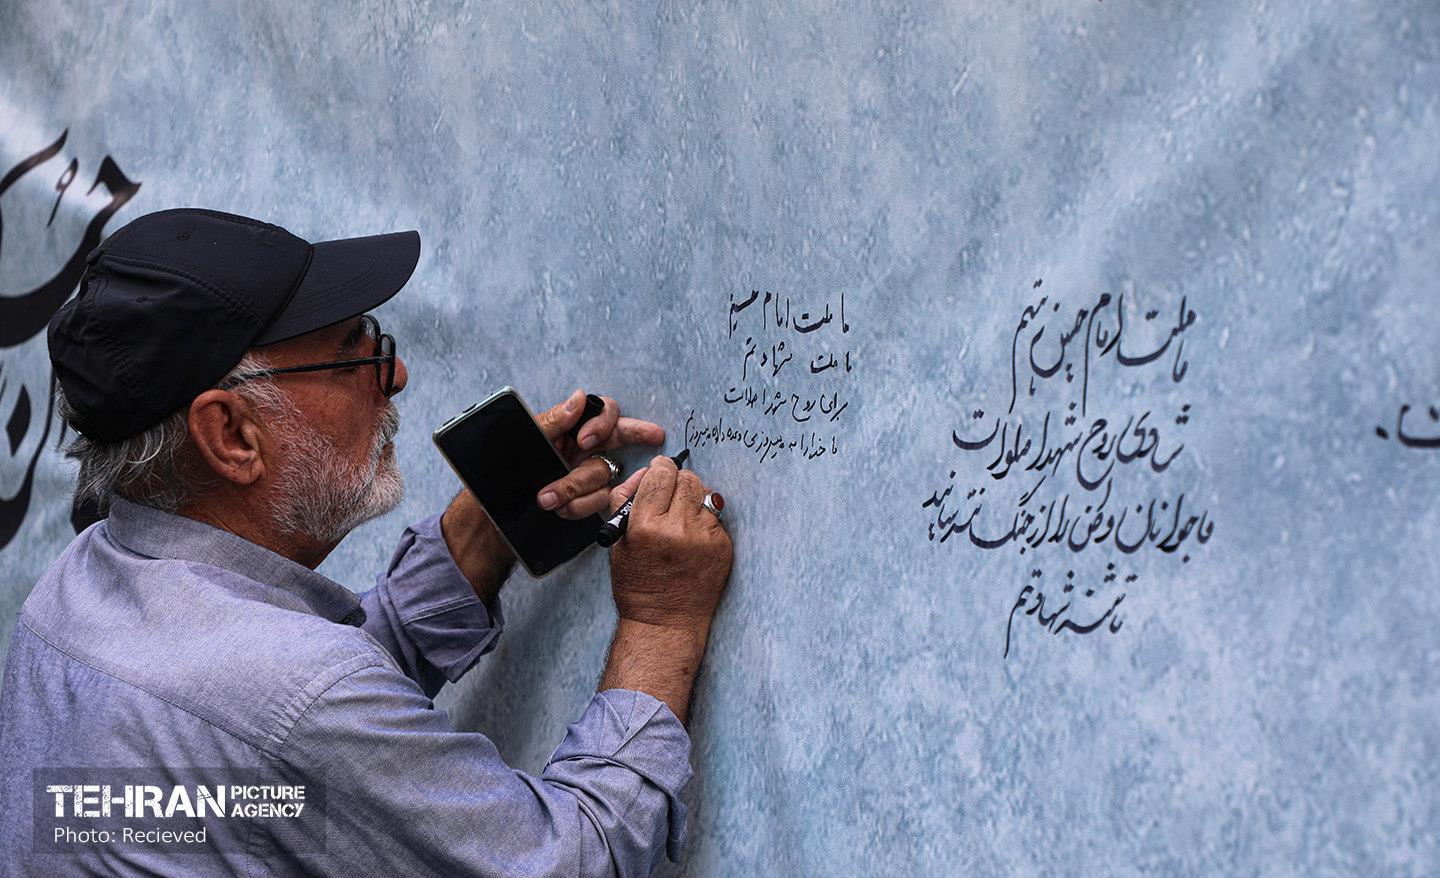 ما ملت امام حسین هستیم
شادی روح شهدا صلوات
ما جوانان وطن را از جنگ نترسانید
ما تشنه شهادتیم
ما ملت امام حسینیم
ما ملت شهادتیم
برای روح شهدا صلوات
ما خدا را به پیروزی وعده داده پیروزیم
TEHRAN PICTURE AGENCY
Photo: Recieved